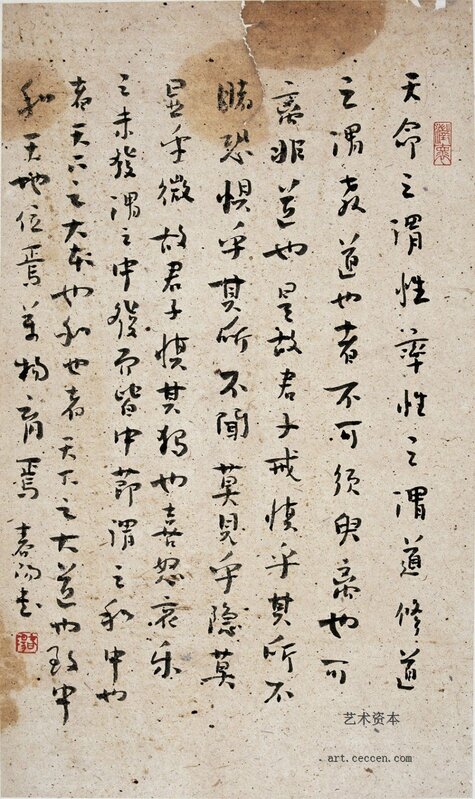 天命之谓性率性之谓道修道
之谓教道也者不可须臾离也可
离非道也是故君子戒慎乎其所不
睹恐惧乎其所不闻莫见乎隐莫
显乎微故君子慎其独也喜怒哀乐
之未發谓之中發而皆中節谓之和中也
者天下之大本也和也者天下之大道也致中
和天地位焉萬物育焉
艺术资本
art.ceccen.com